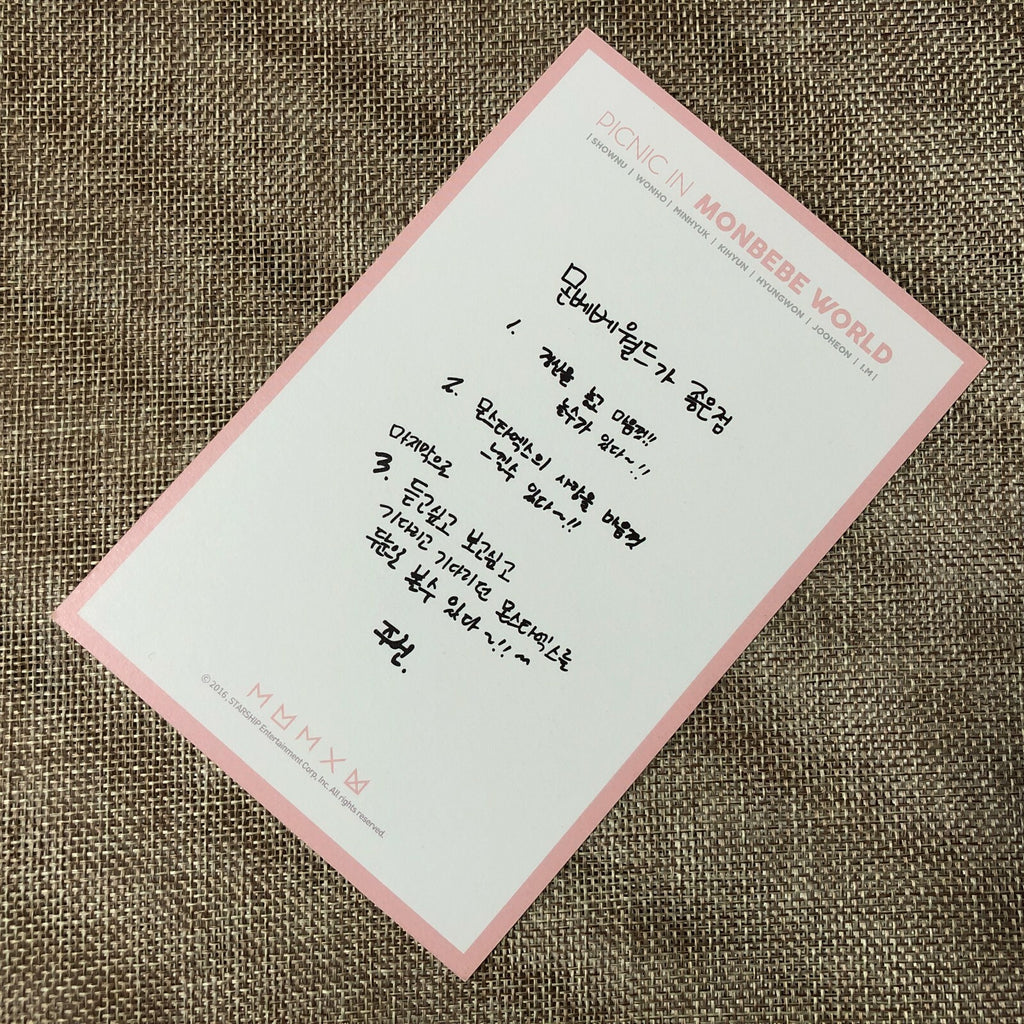 PICNIC IN MONBEBE WORLD
| SHOWNU | WONHO | MINHYUK | KIHYUN | HYUNGWON | JOOHEON | I.M |
몬베베월드가 좋은점
1. 정신을 놓고 마음껏!!
놀수가 있다~!!
2. 몬스타엑스의 사랑을 마음껏
느낄수 있다~!!
마지막으로
3. 듣고싶고 보고싶고
기다리고 기다리던 몬스타엑스를
볼수 있다~!!~
주헌.
MMMXM
© 2016, STARSHIP Entertainment Corp, Inc. All rights reserved.